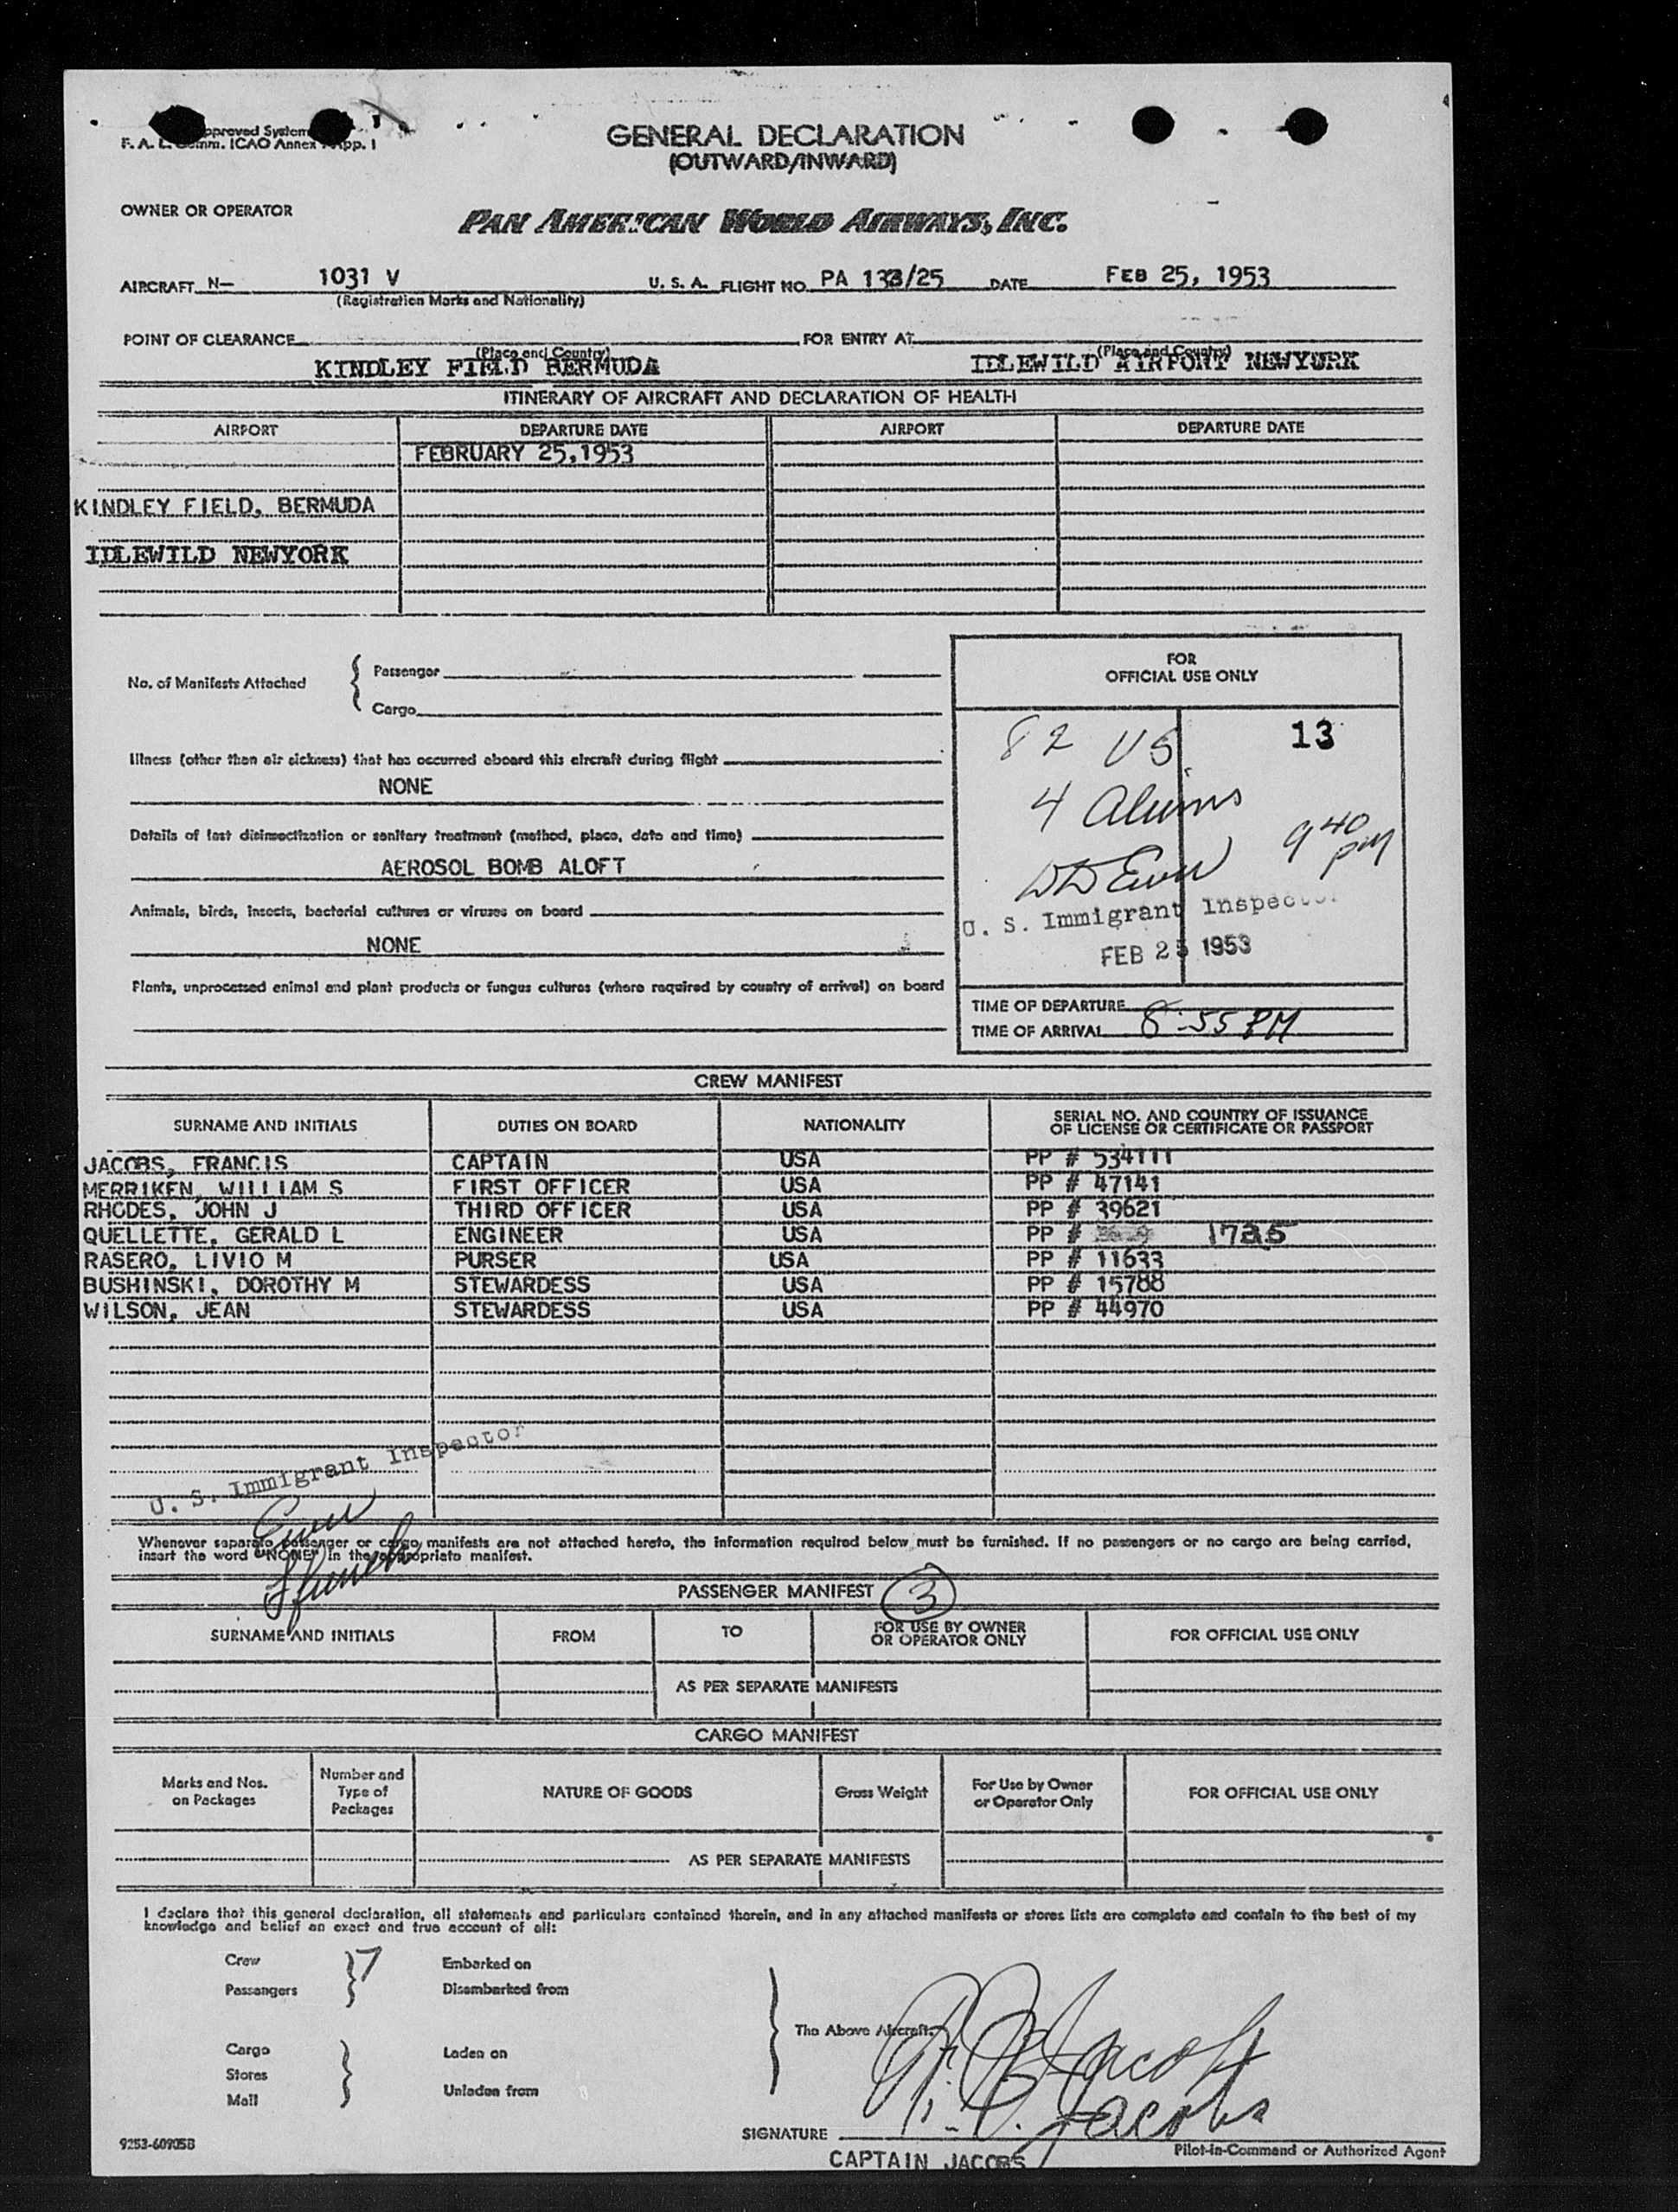 pproved System
F. A. L. Comm. ICAO Annex App. 1
GENERAL DECLARATION
(OUTWARD/INWARD)
OWNER OR OPERATOR
PAN AMERICAN WORLD AIRWAYS, INC.
AIRCRAFT N- 1031 V U. S. A. FLIGHT NO. PA 133/25 DATE FEB 25, 1953
(Registration Marks and Nationality)
POINT OF CLEARANCE FOR ENTRY AT
(Place and Country) (Place and Country)
KINDLEY FIELD BERMUDA IDLEWILD AIRPORT NEWYORK
ITINERARY OF AIRCRAFT AND DECLARATION OF HEALTH
AIRPORT DEPARTURE DATE AIRPORT DEPARTURE DATE
FEBRUARY 25,1953
KINDLEY FIELD, BERMUDA
IDLEWILD NEWYORK
No. of Manifests Attached
Passenger
Cargo
Illness (other than air sickness) that has occurred aboard this aircraft during flight
NONE
Details of last disinsectization or sanitary treatment (method, place, date and time)
AEROSOL BOMB ALOFT
Animals, birds, insects, bacterial cultures or viruses on board
NONE
Plants, unprocessed animal and plant products or fungus cultures (where required by country of arrival) on board
FOR
OFFICIAL USE ONLY
82 US 13
4 Aliens
9 40 pm
U. S. Immigrant Inspector
FEB 25 1953
TIME OF DEPARTURE
TIME OF ARRIVAL 8:55 PM
CREW MANIFEST
SURNAME AND INITIALS DUTIES ON BOARD NATIONALITY SERIAL NO. AND COUNTRY OF ISSUANCE
OF LICENSE OR CERTIFICATE OR PASSPORT
JACOBS, FRANCIS CAPTAIN USA PP # 534111
MERRIKEN, WILLIAM S FIRST OFFICER USA PP # 47141
RHODES, JOHN J THIRD OFFICER USA PP # 39621
QUELLETTE, GERALD L ENGINEER USA PP # 1725
RASERO, LIVIO M PURSER USA PP # 11633
BUSHINSKI, DOROTHY M STEWARDESS USA PP # 15788
WILSON, JEAN STEWARDESS USA PP # 44970
U. S. Immigrant Inspector
Whenever separate passenger or cargo manifests are not attached hereto, the information required below must be furnished. If no passengers or no cargo are being carried,
insert the word "NONE" in the appropriate manifest.
PASSENGER MANIFEST 3
SURNAME AND INITIALS FROM TO FOR USE BY OWNER
OR OPERATOR ONLY FOR OFFICIAL USE ONLY
AS PER SEPARATE MANIFESTS
CARGO MANIFEST
Marks and Nos.
on Packages
Number and
Type of
Packages
NATURE OF GOODS
Gross Weight
For Use by Owner
or Operator Only
FOR OFFICIAL USE ONLY
AS PER SEPARATE MANIFESTS
I declare that this general declaration, all statements and particulars contained therein, and in any attached manifests or stores lists are complete and contain to the best of my
knowledge and belief an exact and true account of all:
Crew 7 Embarked on
Passengers Disembarked from
The Above Aircraft
Cargo Laden on
Stores
Mail Unladen from
Jacobs
Jacobs
SIGNATURE
9253-60905B
Pilot-in-Command or Authorized Agent
CAPTAIN JACOBS